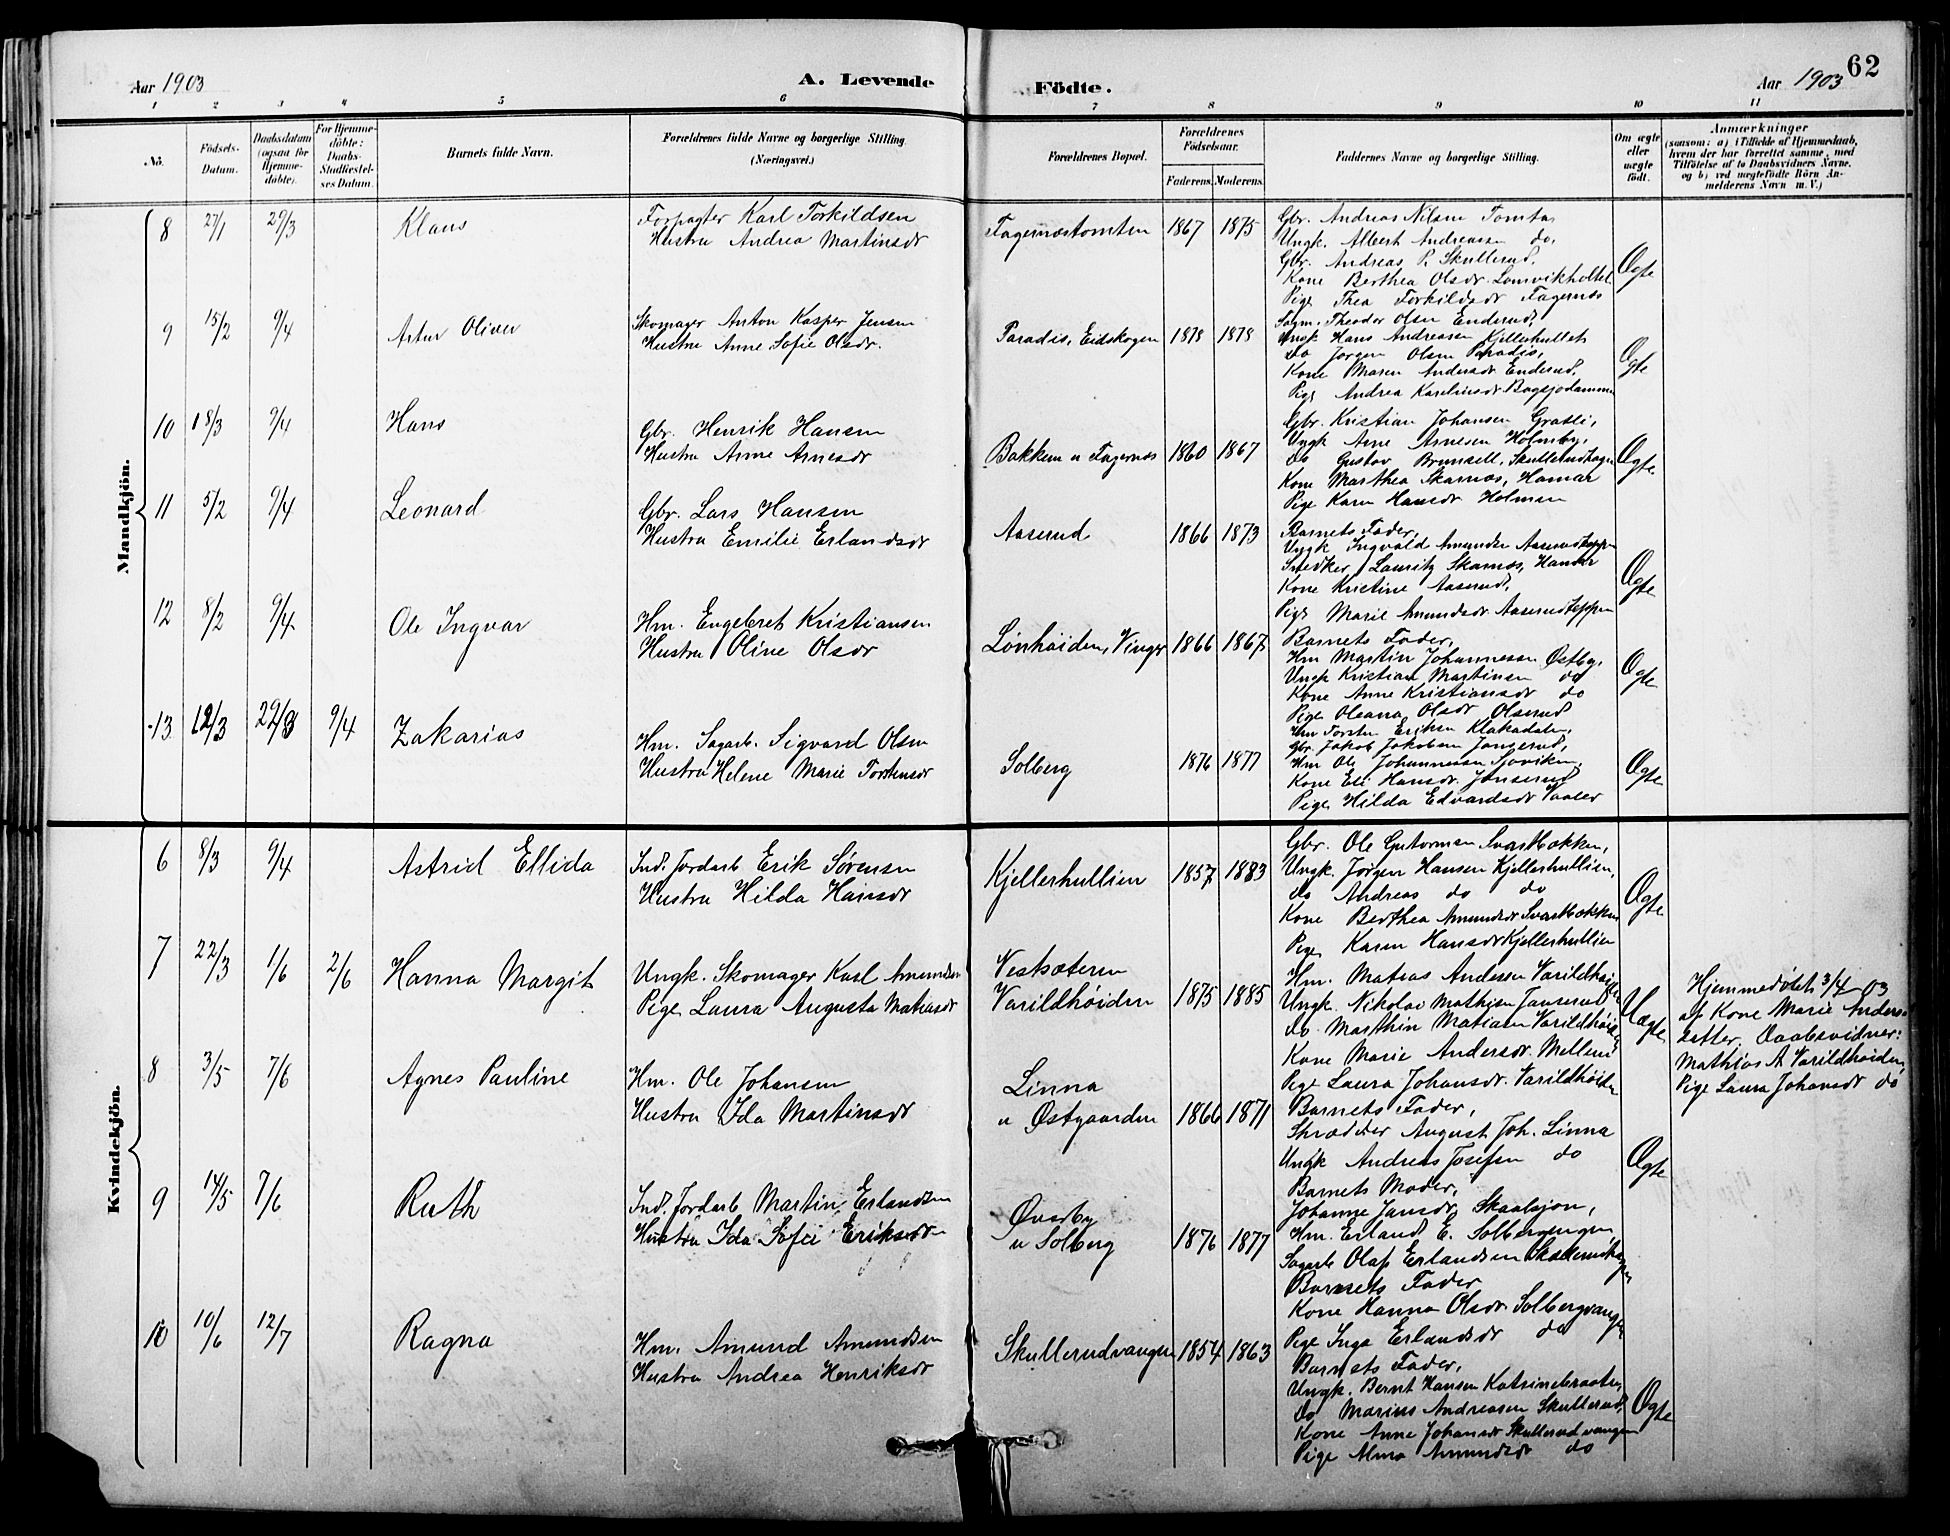 Aar 1903
A. Levende
Födte.
Aar 1903
62
1 2 3 4 5 6 7 8 9 10 11
No.
Födsels-Datum.
Daabsdatum (ogsaa for Hjemme-döbte).
For Hjemme-döbte: Daabs-Stadfæstel-ses Datum.
Barnets fulde Navn.
Forældrenes fulde Navne og borgerlige Stilling (Næringsvei.)
Forældrenes Bopæl.
Forældrenes Födselsaar.
Faderens. Moderens.
Faddernes Navne og borgerlige Stilling.
Om ægte eller uægte födt.
Anmærkninger
(saasom: a) i Tilfælde af Hjemmedaab, hvem der har forrettet samme, med Tilföielse af to Daabsvidners Navne, og b) ved uægtefödte Börn An-melderens Navn m. V.)
Mandkjön.
8 27/1 29/3 Klaus
Forpagter Karl Torkildsen
Hustru Andrea Martinsdr
Fagernæstomten 1867 1875
Gbr. Andreas Nilsen Tomta
Ungk. Albert Andreassen do.
Gbr. Andreas P. Skullerud.
Kone Berthea Olsdr. Lomvikholtet
Pige Thea Torkildsdr Fagernæs
Ægte
9 15/2 9/4 Artur Oliver
Skomager Anton Kasper Jensen
Hustru Anne Sofie Olsdr.
Paradis, Eidskogen 1878 1878
Sagm. Theodor Olsen Enderud,
Ungk Hans Andreassen Kjellerhullet
do Jørgen Olsen Paradis,
Kone Maren Andersdr Enderud,
Pige Andrea Karelinsdr Bøgsjødammen
Ægte
10 18/3 9/4 Hans
Gbr. Henrik Hansen
Hustru Anne Arnesdr
Bakken u Fagernæs 1860 1867
Gbr. Kristian Johansen Grasli,
Ungk Arne Arnesen Holmby,
do Gustav Brunsell, Skullerudhagen
Kone Marthea Skarnæs, Hamar
Pige Karen Hansdr Holmen
Ægte
11 5/2 9/4 Leonard
Gbr. Lars Hansen
Hustru Emilie Erlandsdr
Aaserud 1866 1873
Barnets Fader,
Ungk Ingvald Amundsen Aaserudteppen
Snedker Lauritz Skarnæs, Hamar
Kone Kristine Aaserud,
Pige Marie Amundsdr Aaserudteppen
Ægte
12 8/2 9/4 Ole Ingvar
Hm. Engebret Kristiansen
Hustru Oline Olsdr
Lønhøiden, Vinger 1866 1867
Barnets Fader,
Hm Martin Johannessen Østby,
Ungk Kristian Martinsen do
Kone Anne Kristiansdr do
Pige Oleana Olsdr Olserud
Ægte
13 12/3 29/3 9/4 Zakarias
Hm. Sagarb. Sigvard Olsen
Hustru Helene Marie Torstensdr
Solberg 1876 1877
Hm Torsten Eriksen Klakadalen,
Gbr. Jakob Jakobsen Jangerud,
Hm Ole Johannesen Noviken,
Kone Eli Hansdr. Jonserud
Pige Hilda Edvardsdr Vaaler
Ægte
Kvindekjön.
6 8/3 9/4 Astrid Ellida
Ind. Jordarb Erik Sørensen
Hustru Hilda Hansdr
Kjellerhullien 1857 1883
Gbr. Ole Gutormsen Svartbækken,
Ungk. Jørgen Hansen Kjellerhullien,
do Andreas do do
Kone Berthea Amundsdr Svartbækken
Pige Karen Hansdr Kjellerhullien
Ægte
7 22/3 1/6 2/6 Hanna Margit
Ungk. Skomager Karl Amundsen
Pige Laura Augusta Matiasdr
Vestsæteren
Varildhøiden 1875 1885
Hm. Matias Andersen Varildhøiden
Ungk. Nikolai Mathisen Janserud
do. Marthin Matiasen Varildhøiden
Kone Marie Andersdr. Mellem
Pige Laura Johansdr. Varildhøiden
Uægte
Hjemmedøbt 3/4 03
af Kone Marie Anders-
datter. Daabsvidner:
Mathias A. Varildhøiden,
Pige Laura Johansdr do
8 3/5 7/6 Agnes Pauline
Hm. Ole Johansen
Hustru Ida Martinsdr
Linna
u Østgaarden 1866 1871
Barnets Fader,
Skrædder August Joh. Linna
Ungk Andreas Josefsen do
Barnets Moder,
Johanne Jansdr, Skaalsjøn,
Ægte
9 14/5 7/6 Ruth
Ind. Jordarb Martin Erlandsen
Hustru Ida Sofie Eriksdr
Øvreby
u Solberg 1876 1877
Hm. Erland E. Solbergvangen,
Sagarb Olaf Erlandsen Skullerudhagen
Barnets Fader
Kone Hanna Olsdr Solbergvangen
Pige Inga Erlandsdr do
10 10/6 12/7 Ragna
Hm. Amund Amundsen
Hustru Andrea Henriksdr
Skullerudvangen 1854 1863
Barnets Fader,
Ungk. Bernt Hansen Katrinebraaten,
do Marius Andreasen Skullerud,
Kone Anne Johansdr Skullerudvangen
Pige Alma Amundsdr do
Ægte